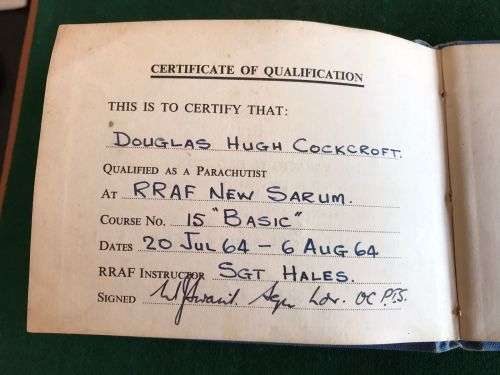 CERTIFICATE OF QUALIFICATION
THIS IS TO CERTIFY THAT:
DOUGLAS HUGH COCKCROFT.
QUALIFIED AS A PARACHUTIST
AT RRAF NEW SARUM.
COURSE NO. 15 "BASIC"
DATES 20 JUL 64 - 6 AUG 64
RRAF INSTRUCTOR SGT HALES.
SIGNED Sqn Ldr. OC P.T.S.